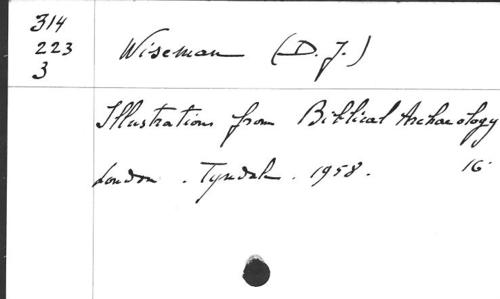 314
223
3
Wiseman (D. J.)
Illustrations from Biblical Archaeology
London. Tyndale. 1958. 16